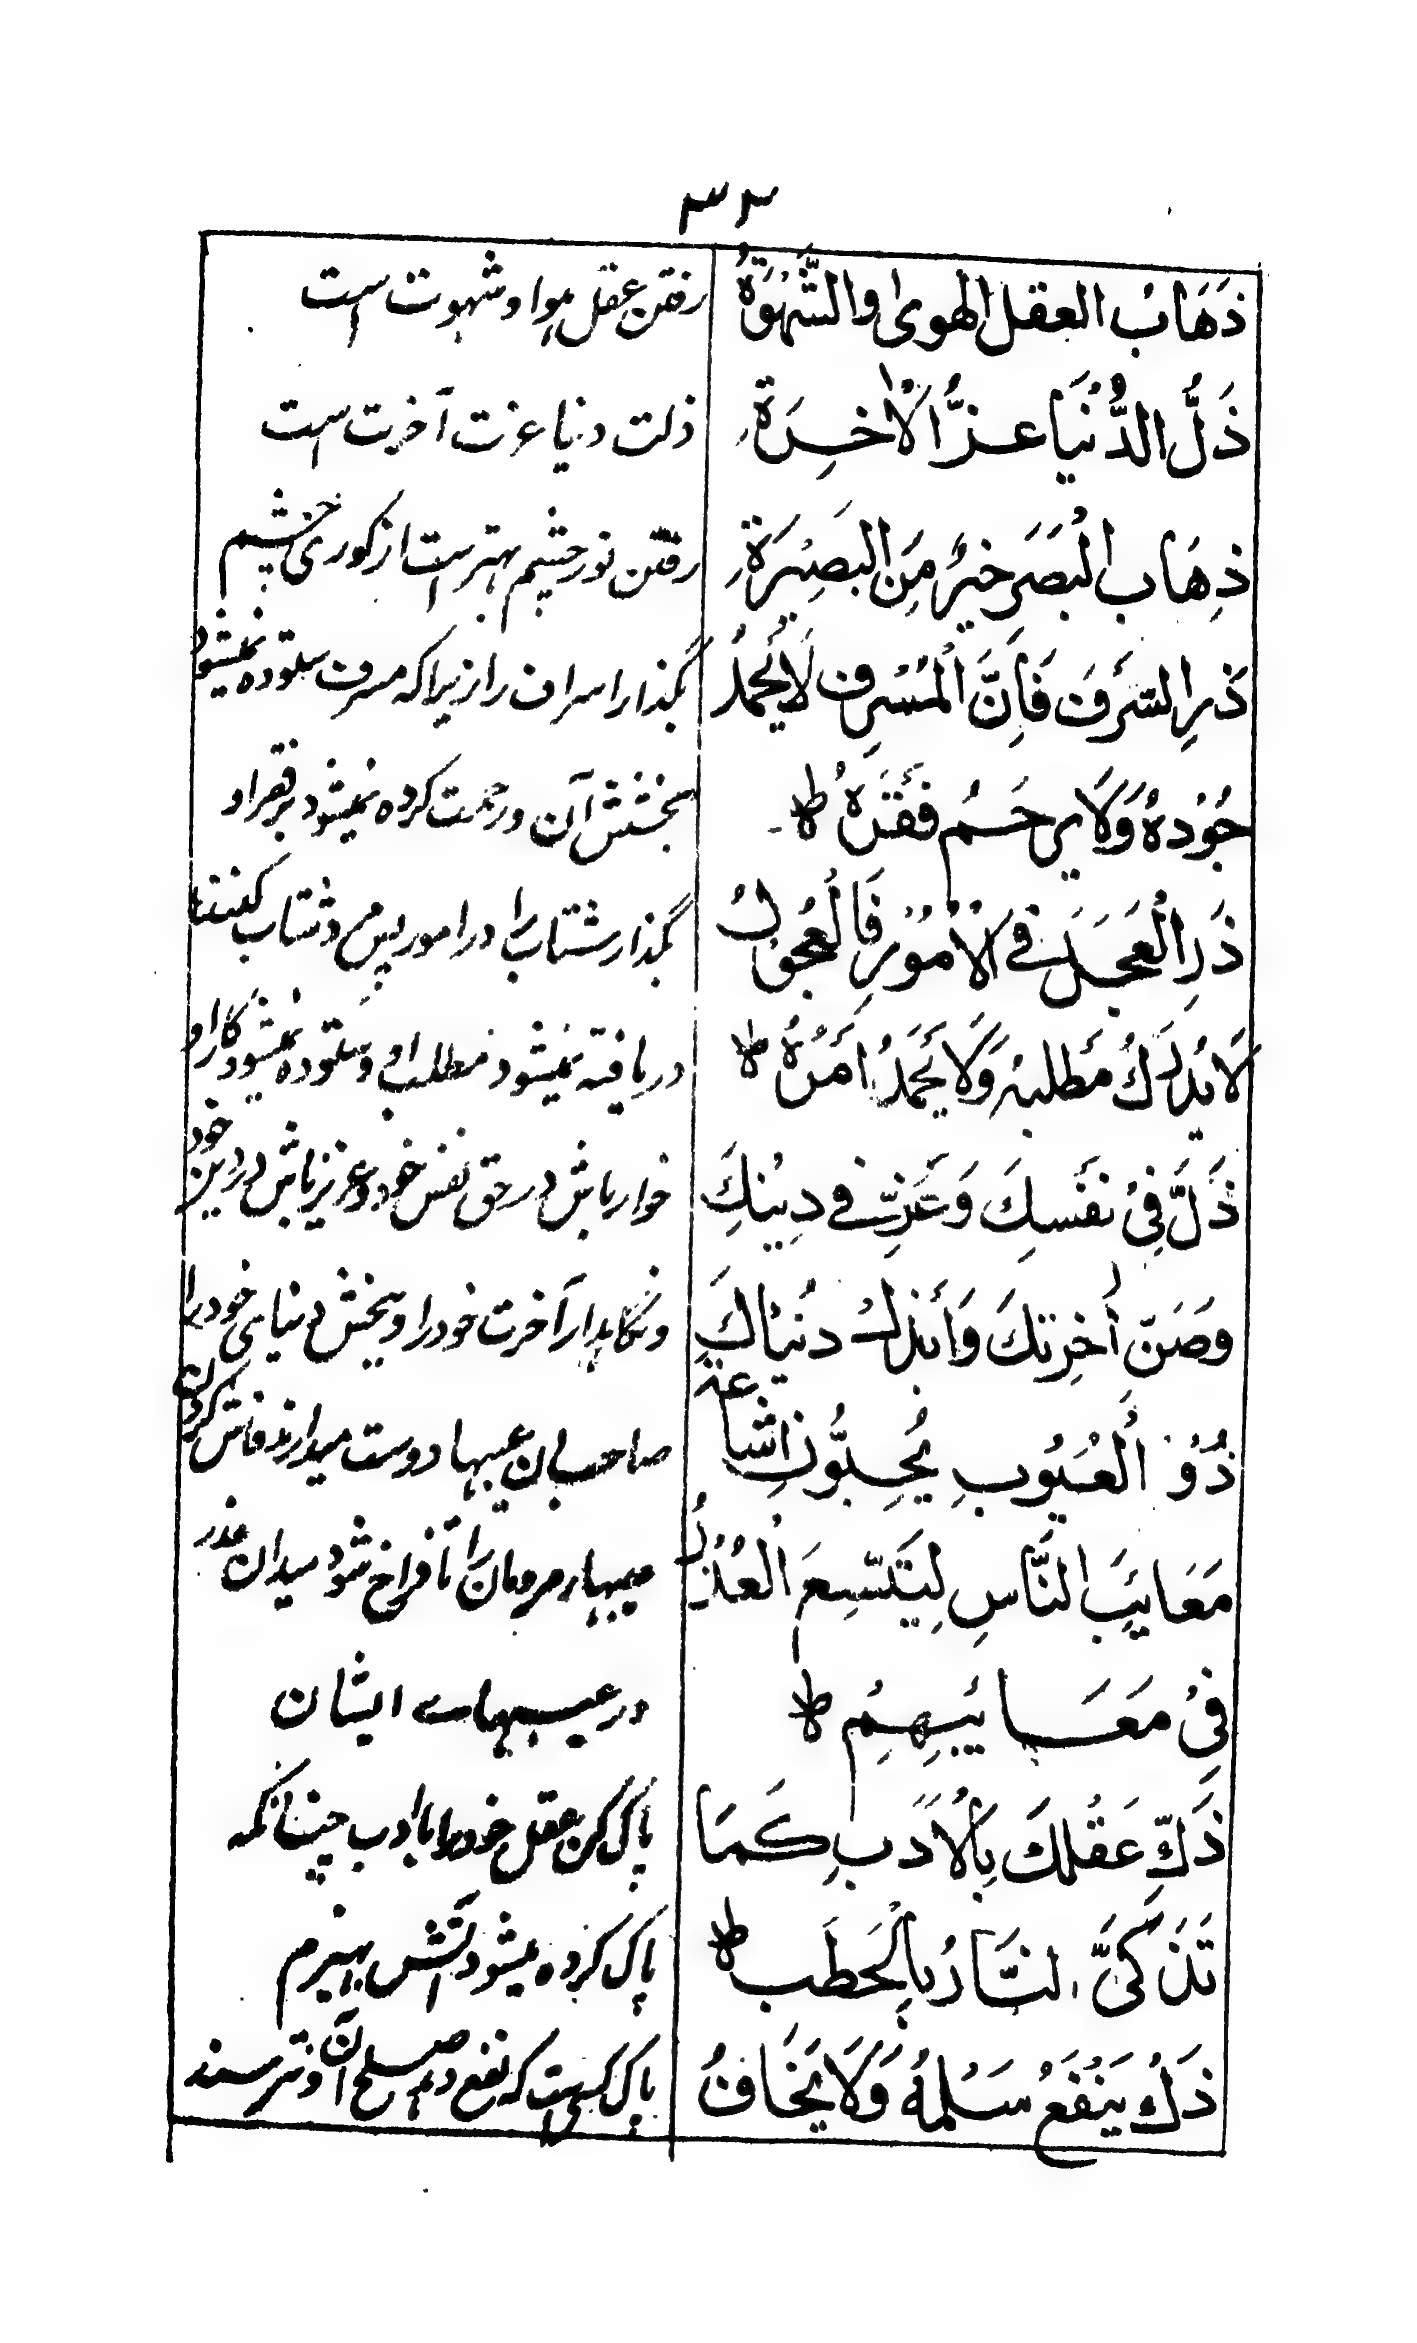 ۳۲
ذَهَابُ العقل الهوىٰ والشَّهْوَةُ
رفتن عقل هوا و شهوت است
ذَلُّ الدُّنْيَا عِزُّ الْاٰخِرَةِ
ذلت دنیا عزت آخرت است
ذِهَاب الْبَصَر خَيْرٌ مِّنَ البَصِيْرَةِ
رفتن نور چشم بهتر است از کوری چشم
ذَرِ السَّرَفَ فَاِنَّ الْمُسْرِف لَا يُحْمَدُ
بگذار اسراف را زیرا که مسرف ستوده نمیشود
جُوْدهُ وَلَا يرحَمُ فَقْرَهُ ط
بخشش آن و رحمت کرده نمیشود بر فقر او
ذَرِ الْعَجَلَ فى الْاُمُوْرِ فَالْعَجُوْلُ
بگذار شتاب را در امور پس شتاب کننده
لَا يُدْرَكُ مَطلبهُ وَلَا يُحْمَدُ اَمْرُهُ ط
دریافته نمیشود مطلب او و ستوده نمیشود کار او
ذَلَّ فِىْ نَفْسِكَ وَعَزِّ فى دِيْنِكَ
خوار باش در حق نفس خود و عزیز باش در دین خود
وَصَنّ اٰخِرتكَ وَاَبْذل دُنْيَاكَ
و نگاهدار آخرت خود را و ببخش دنیای خود را
ذُوْ الْعُيُوْبِ يُحِبُّوْنَ اِشَاعة
صاحبان عیبها دوست میدارند فاش کردن
مَعَائِبَ النَّاسِ لِيَتَّسِعَ الْعُذْرُ
عیبهای مردمان را تا فراخ شود میدان عذر
فِىْ مَعَائِبِهِمْ ط
در عیبهای ایشان
ذَكِّ عَقْلكَ بِالْاَدَبِ كَمَا
پاک کن عقل خود را با ادب چنانکه
تَذَكىَّ النَّارُ بِالْحَطَبِ ط
پاک کرده میشود آتش بهیزم
ذَكْ يَنْفَعُ سَلْمهُ وَلَا يَخَافُ
پاک کسی است که نفع دهد صلح آن و نترسند